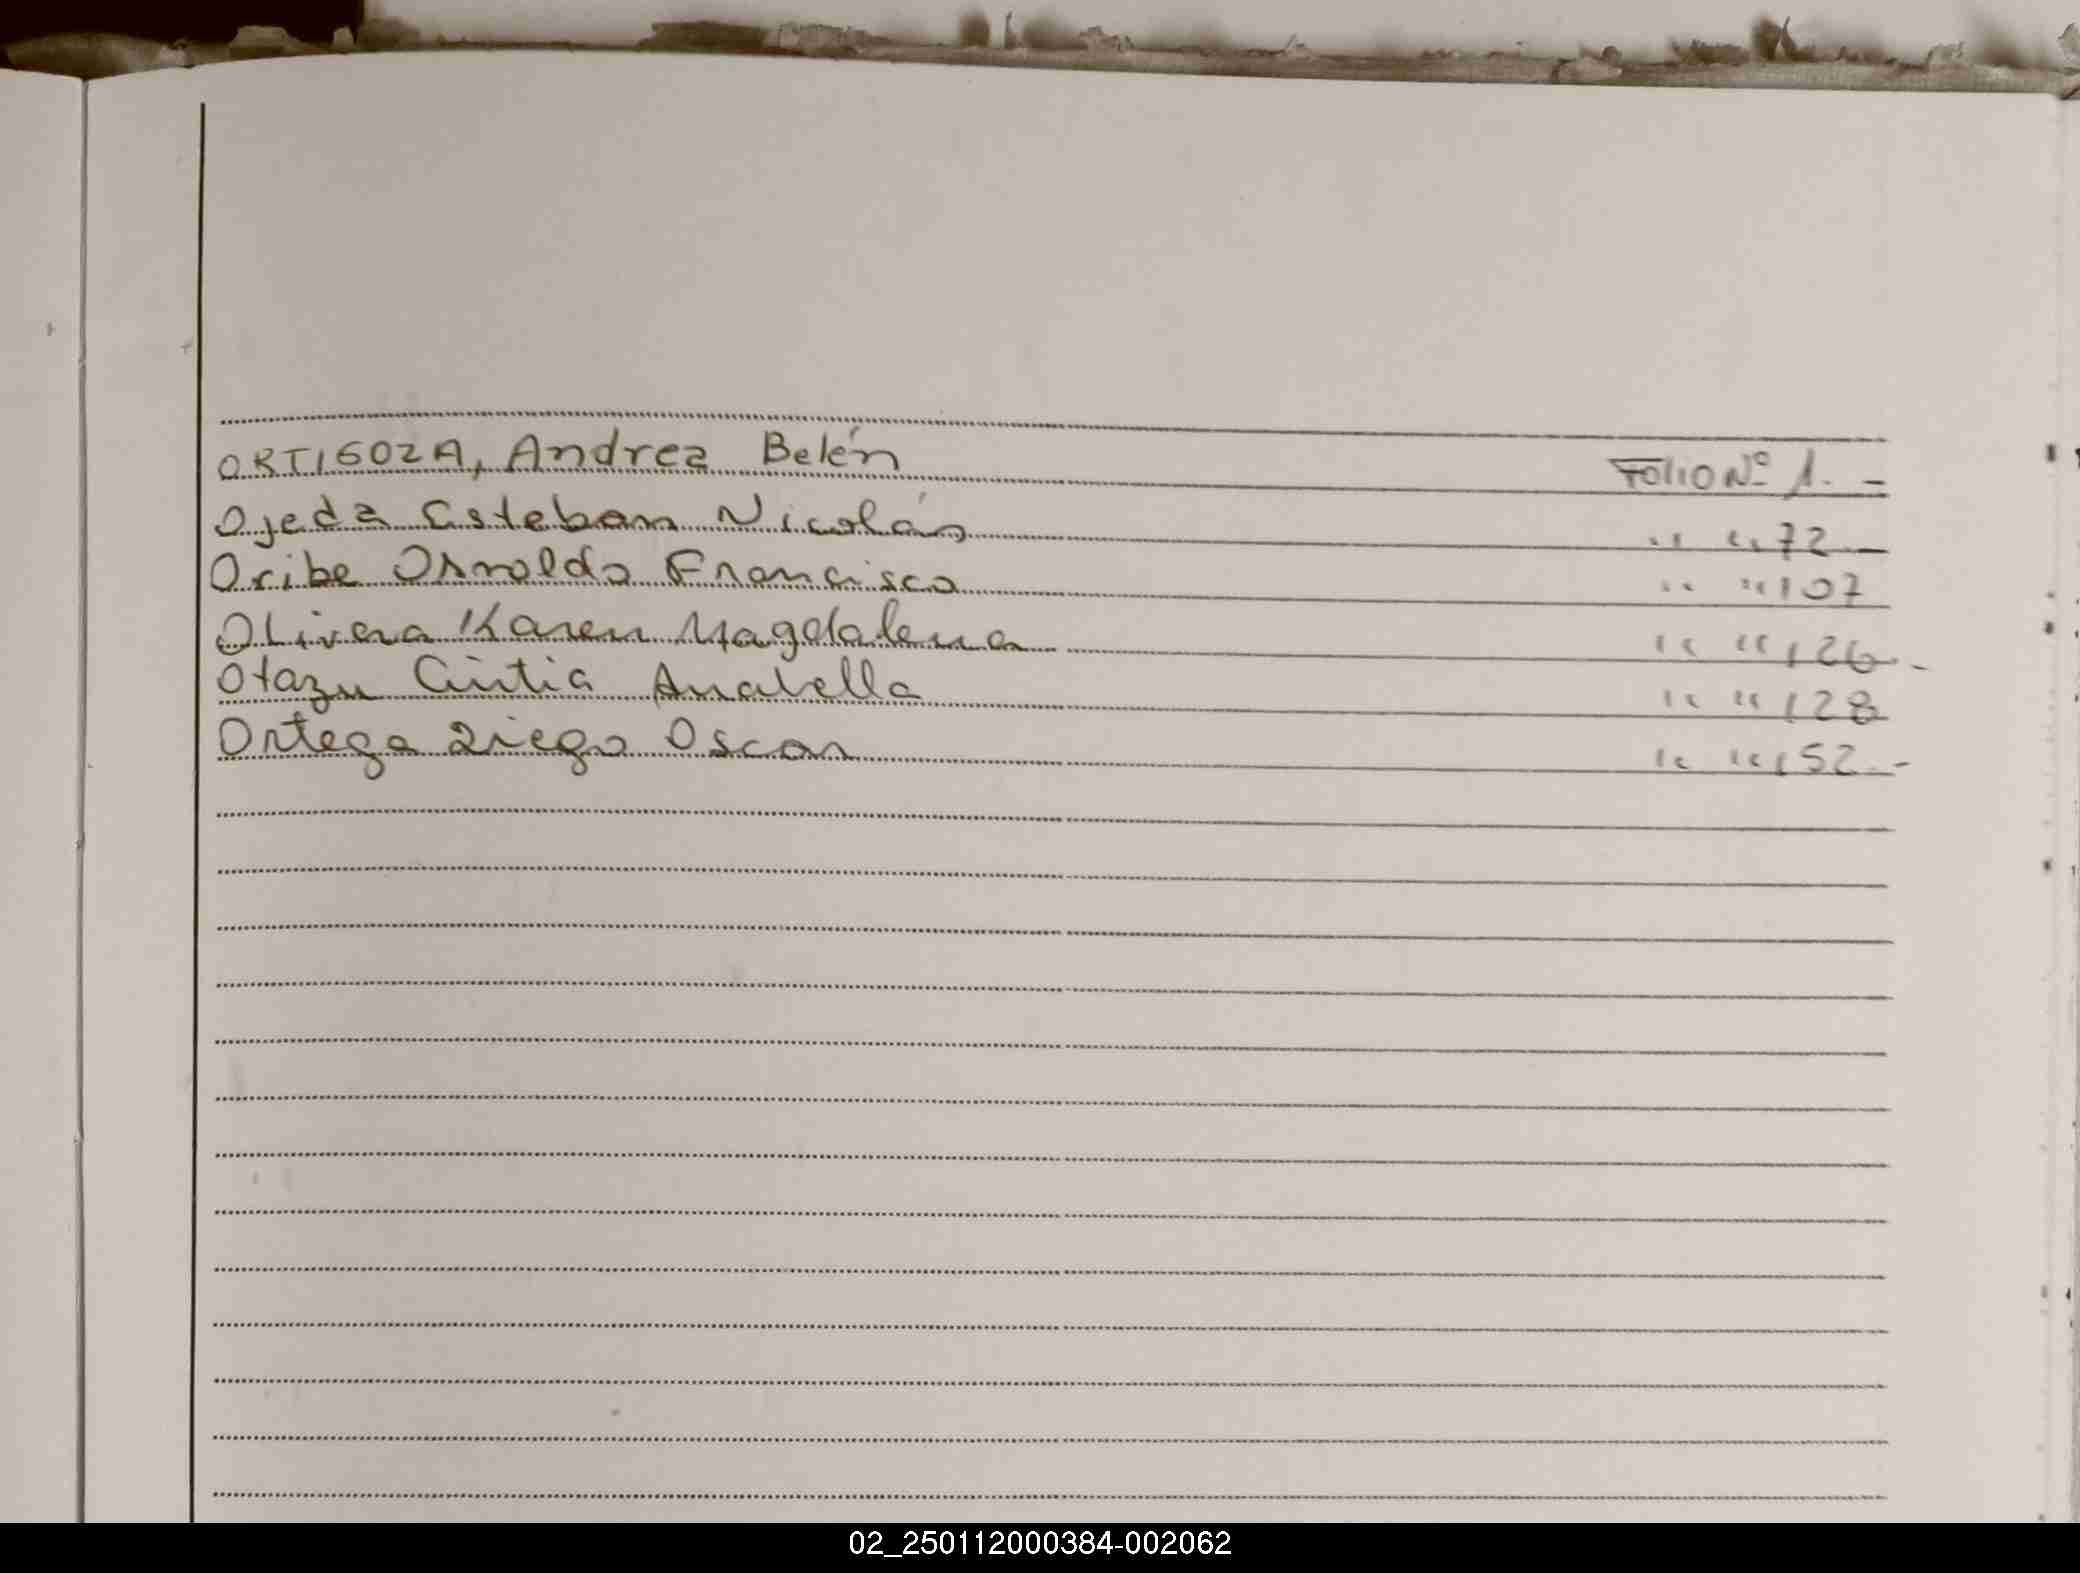 ORTIGOZA, Andrea Belén FOLIO Nº 1. -
Ojeda Esteban Nicolás " " 72 -
Oribe Osvaldo Francisco " " 107
Olivera Karen Magdalena " " 126 -
Otazu Cintia Anabella " " 128
Ortega Diego Oscar " " 152 -
02_250112000384-002062